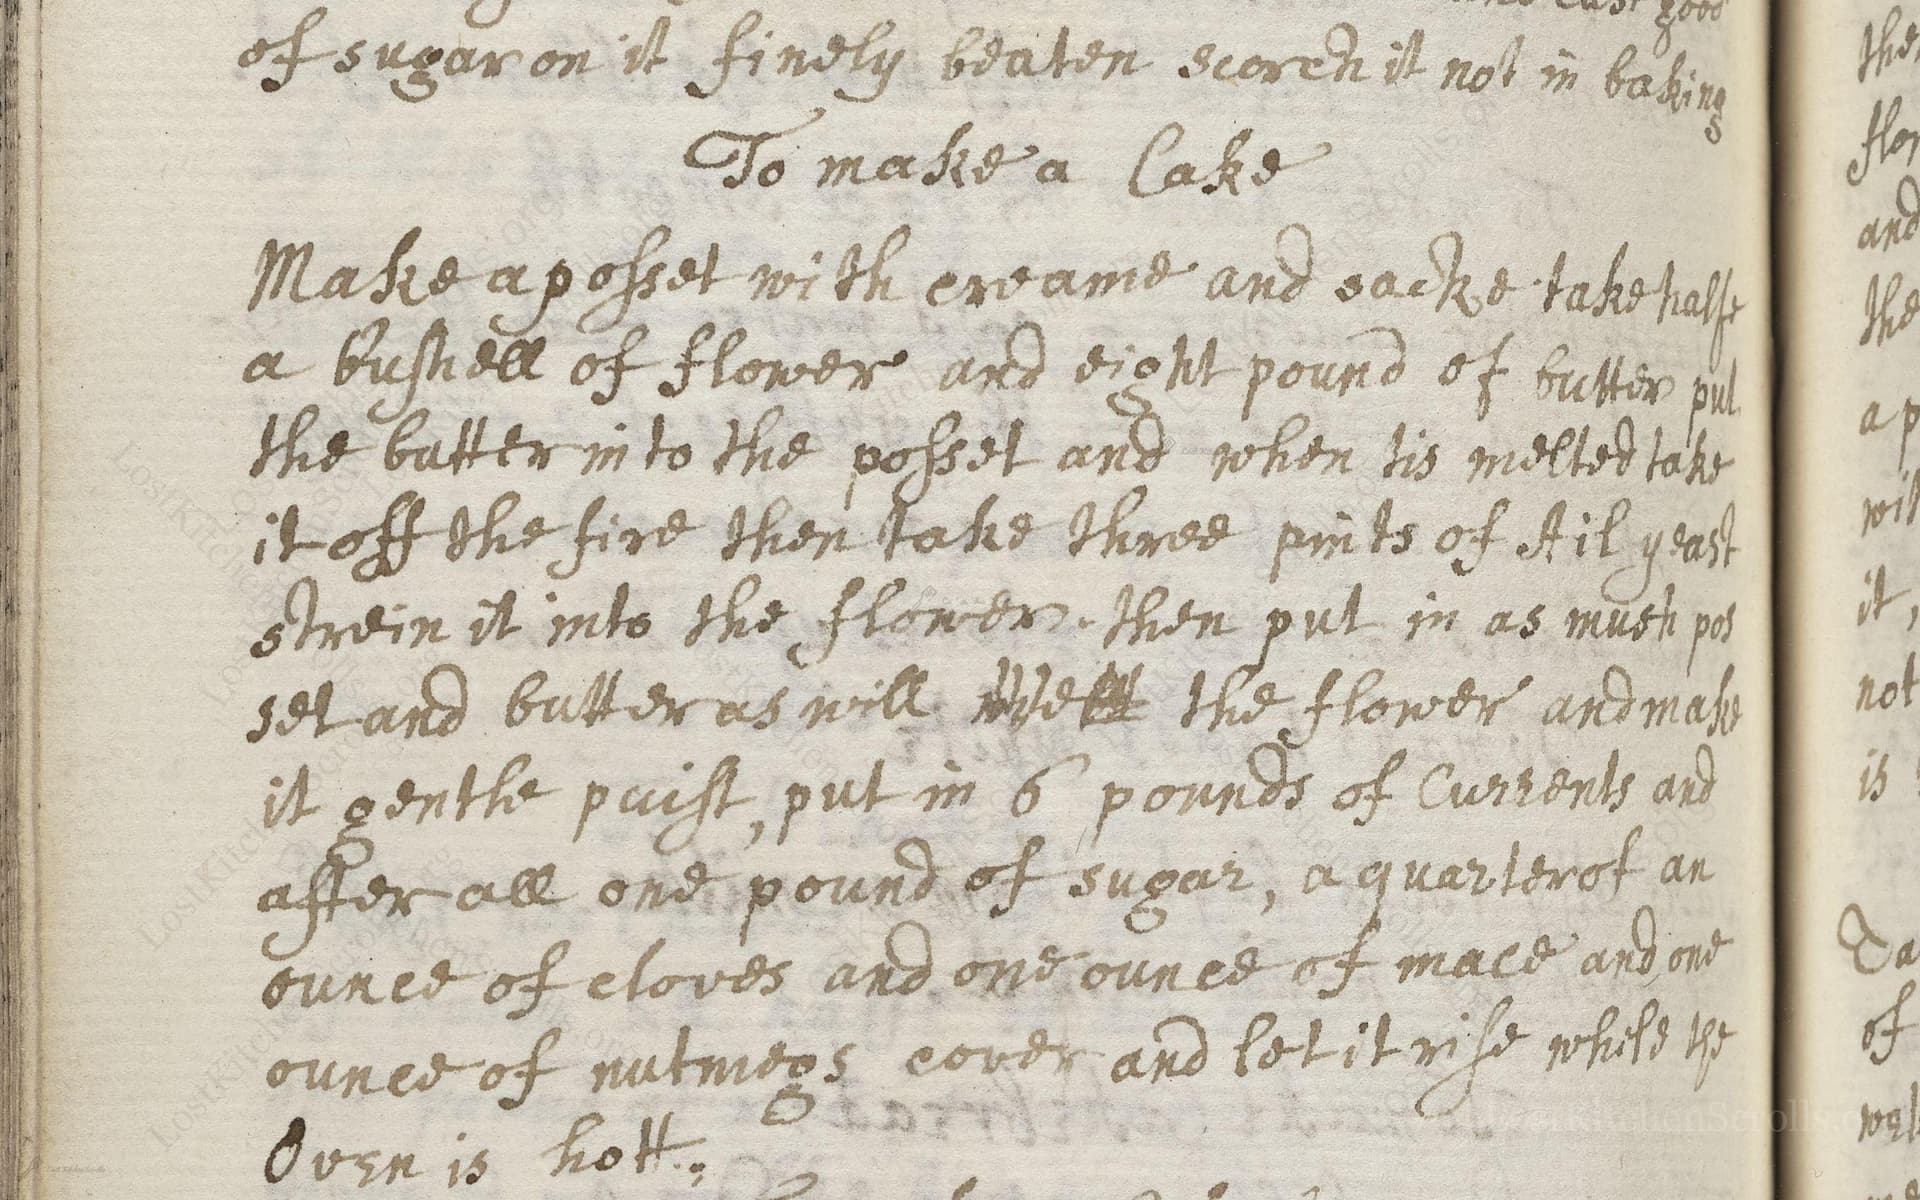 and cast good
of sugar on it finely beaten scorch it not in baking
To make a Cake
Make a posset with creame and sacke take halfe
a bushell of flower and eight pound of butter put
the butter into the posset and when tis melted take
it off the fire then take three pints of Ail yeast
strein it into the flower. then put in as much pos
set and butter as will wett the flower and make
it gentle paist, put in 6 pounds of Currents and
after all one pound of sugar, a quarter of an
ounce of cloves and one ounce of mace and one
ounce of nutmegs cover and let it rise while the
Oven is hott.:
the
flor
and
the
a p
wit
it,
not
is
Ta
of
wel
LostKitchenScrolls.org